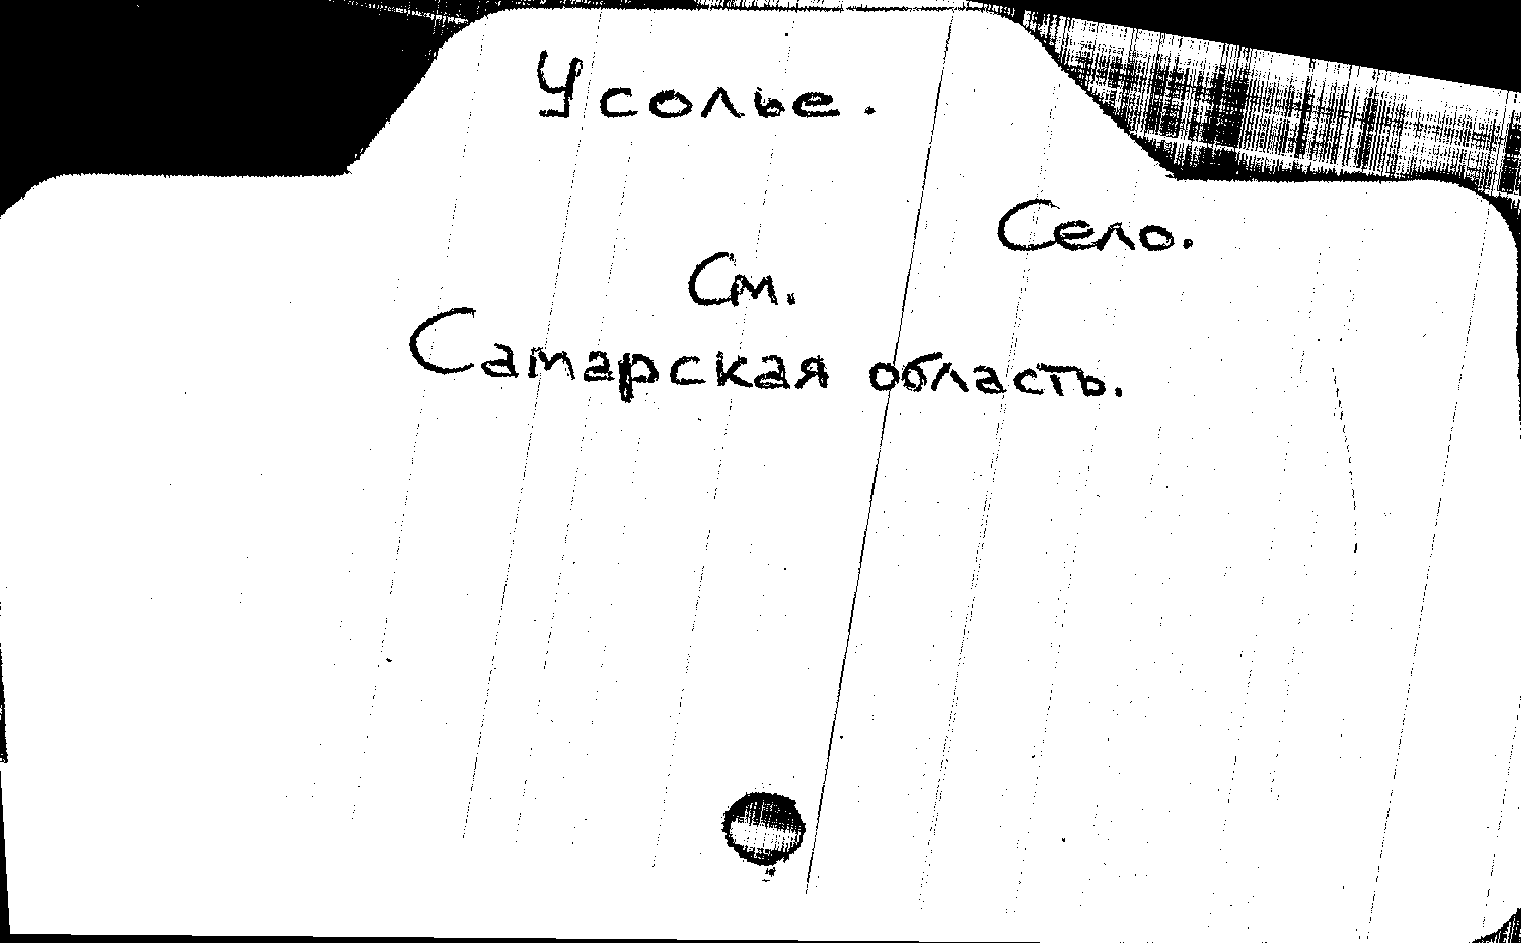 Усолье.
Село.
См.
Самарская область.